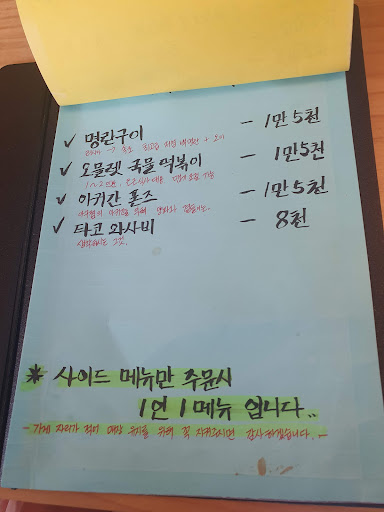 ✓ 명란구이 - 1만 5천
✓ 오믈렛 국물 떡볶이 - 1만 5천
✓ 아귀간 폰즈 - 1만 5천
✓ 타코 와사비 - 8천
생각하시는 그것.
* 사이드 메뉴만 주문시
1인 1메뉴 입니다..
- 가게 자리가 적어 매장 유지를 위해 꼭 지켜주시면 감사하겠습니다. -